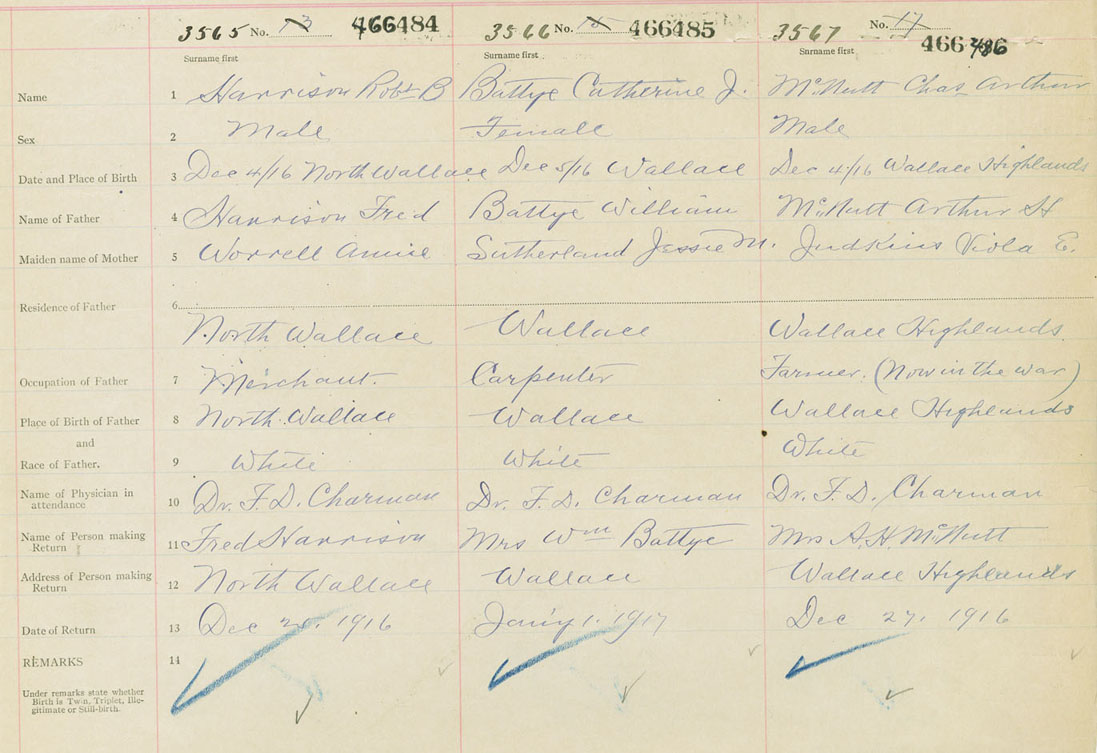 3565 No. 13 466484 3566 No. 15 466485 3567 No. 17 466486
Surname first Surname first Surname first
Name 1 Harrison Robt B Battye Catherine J. McNutt Chas Arthur
Sex 2 Male Female Male
Date and Place of Birth 3 Dec 4/16 North Wallace Dec 5/16 Wallace Dec 4/16 Wallace Highlands
Name of Father 4 Harrison Fred Battye William McNutt Arthur H
Maiden name of Mother 5 Worrell Annie Sutherland Jessie M. Judkins Viola E.
Residence of Father 6
North Wallace Wallace Wallace Highlands
Occupation of Father 7 Merchant. Carpenter Farmer. (Now in the war)
Place of Birth of Father 8 North Wallace Wallace Wallace Highlands
and
Race of Father. 9 White White White
Name of Physician in
attendance 10 Dr. F. D. Charman Dr. F. D. Charman Dr. F. D. Charman
Name of Person making
Return 11 Fred Harrison Mrs Wm Battye Mrs A. H. McNutt
Address of Person making
Return 12 North Wallace Wallace Wallace Highlands
Date of Return 13 Dec 1916 Jan'y 1. 1917 Dec 27. 1916
REMARKS 14
Under remarks state whether
Birth is Twin, Triplet, Ille-
gitimate or Still-birth.